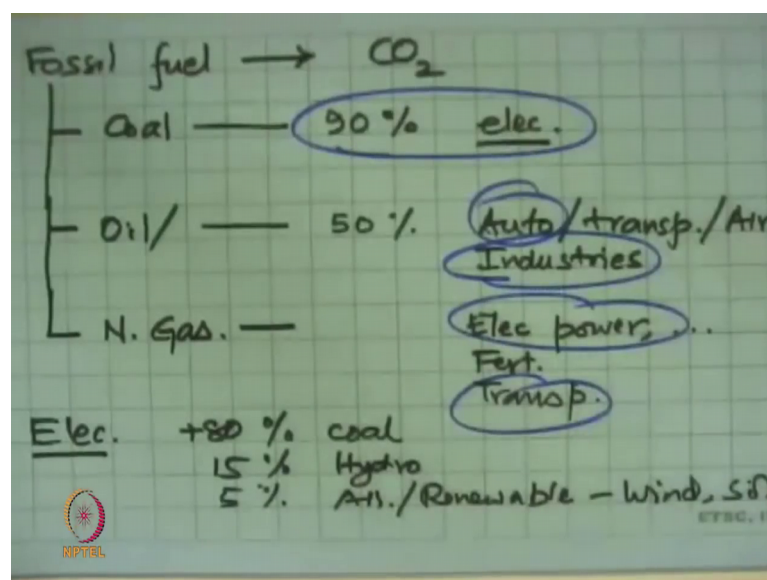 Fossil fuel → CO2
Coal — 90 % elec.
Oil/ — 50 % Auto/transp./Air
Industries
N. Gas. — Elec power, ...
Fert.
Transp.
Elec. +80 % coal
15 % Hydro
5 % /Renewable – Wind,
NPTEL